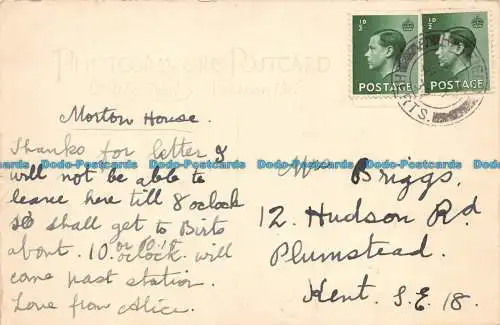 PHOTOGRAVURE POSTCARD
1D/2
POSTAGE
1D/2
POSTAGE
HERTS.
Morton House.
Thanks for letter I
will not be able to
leave here till 8 oclock
so shall get to Birts
about. 10. or 10.15 oclock. will
come past station.
Love from Alice.
Mrs Briggs.
12. Hudson Rd
Plumstead.
Kent. S.E. 18.
Dodo-Postcards Dodo-Postcards Dodo-Postcards Dodo-Postcards Dodo-Postcards Dodo-Postcards